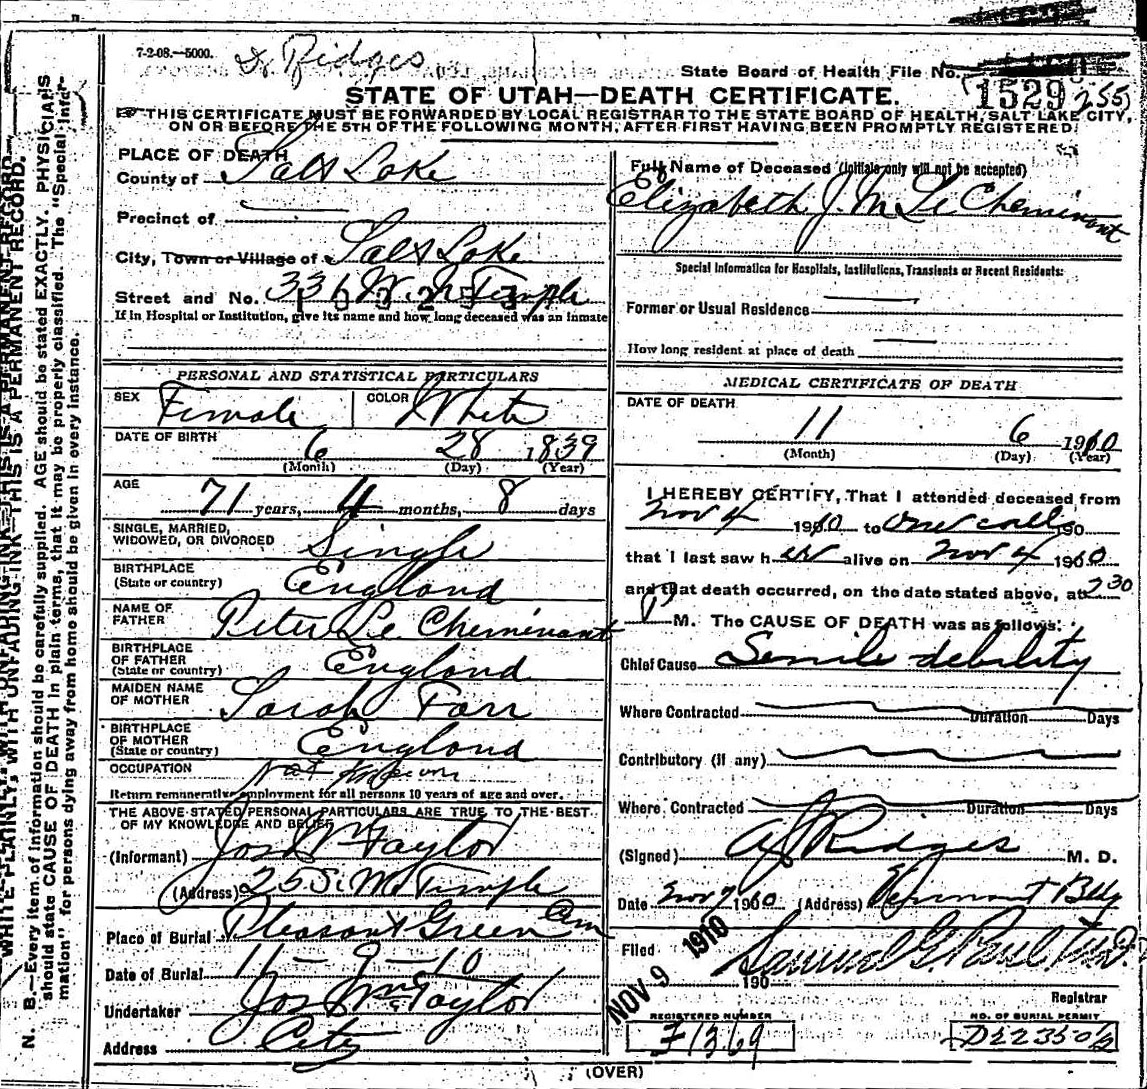 7-2-08.—5000.
Dr Ridges
State Board of Health File No.
1529 255
STATE OF UTAH—DEATH CERTIFICATE.
THIS CERTIFICATE MUST BE FORWARDED BY LOCAL REGISTRAR TO THE STATE BOARD OF HEALTH, SALT LAKE CITY,
ON OR BEFORE THE 5TH OF THE FOLLOWING MONTH, AFTER FIRST HAVING BEEN PROMPTLY REGISTERED.
WRITE PLAINLY, WITH UNFADING INK—THIS IS A PERMANENT RECORD.
N. B.—Every item of information should be carefully supplied. AGE should be stated EXACTLY. PHYSICIANS
should state CAUSE OF DEATH in plain terms, that it may be properly classified. The "Special Infor-
mation" for persons dying away from home should be given in every instance.
PLACE OF DEATH
County of Salt Lake
Precinct of
City, Town or Village of Salt Lake
Street and No. 336 W. N. Temple
If in Hospital or Institution, give its name and how long deceased was an inmate
PERSONAL AND STATISTICAL PARTICULARS
SEX Female COLOR White
DATE OF BIRTH 6 28 1839
(Month) (Day) (Year)
AGE
71 years, 4 months, 8 days
SINGLE, MARRIED,
WIDOWED, OR DIVORCED Single
BIRTHPLACE
(State or country) England
NAME OF
FATHER Peter Le Cheminant
BIRTHPLACE
OF FATHER
(State or country) England
MAIDEN NAME
OF MOTHER Sarah Farr
BIRTHPLACE
OF MOTHER
(State or country) England
OCCUPATION Not Known
Return remunerative employment for all persons 10 years of age and over.
THE ABOVE STATED PERSONAL PARTICULARS ARE TRUE TO THE BEST
OF MY KNOWLEDGE AND BELIEF
(Informant) Jos Wm Taylor
(Address) 25 S. W. Temple
Place of Burial Pleasant Green Cem
Date of Burial 11 - 9 - 10
Undertaker Jos Wm Taylor
Address City
Full Name of Deceased (Initials only will not be accepted)
Elizabeth J. M Le Cheminant
Special Information for Hospitals, Institutions, Transients or Recent Residents:
Former or Usual Residence
How long resident at place of death
MEDICAL CERTIFICATE OF DEATH
DATE OF DEATH
11 6 1910
(Month) (Day) (Year)
I HEREBY CERTIFY, That I attended deceased from
Nov 4 1910 to One call 190
that I last saw her alive on Nov 4 1910
and that death occurred, on the date stated above, at 2 30
P M. The CAUSE OF DEATH was as follows:
Chief Cause Senile debility
Where Contracted Duration Days
Contributory (if any)
Where Contracted Duration Days
(Signed) A J Ridges M. D.
Date Nov 7 1910 (Address) Vermont Bldg
Filed NOV 9 1910 Samuel G. Paul M.D.
190
Registrar
REGISTERED NUMBER
F1369
NO. OF BURIAL PERMIT
D22350½
(OVER)